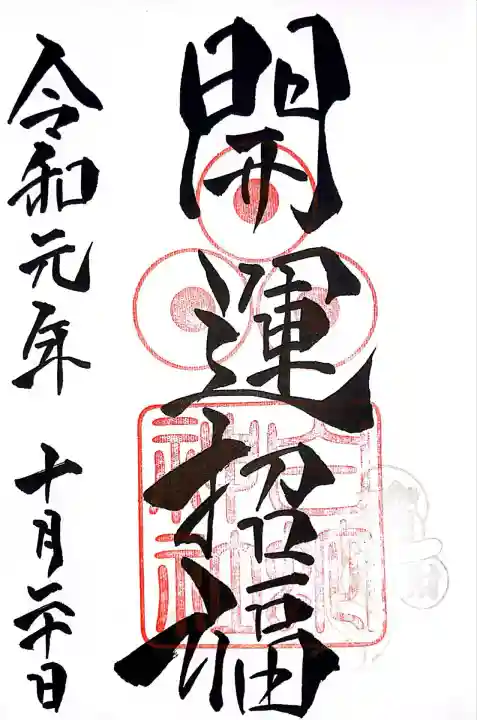 開運招福
令和元年 十月二十日